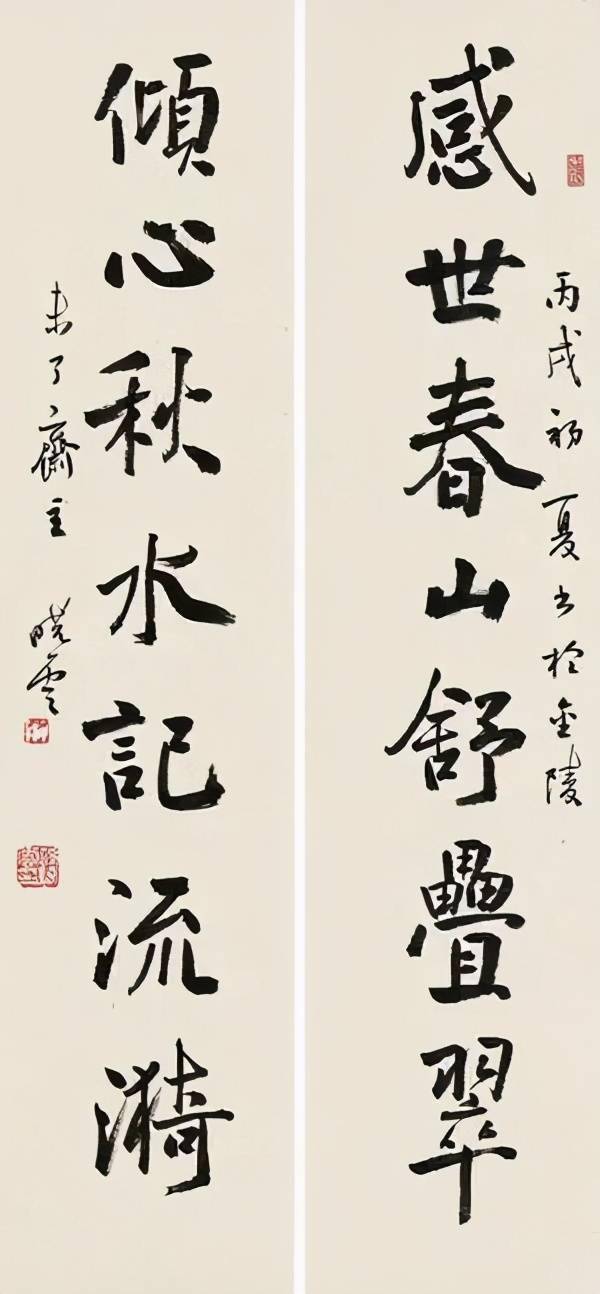 感世春山舒疊翠
丙戌初夏書於金陵
傾心秋水記流漪
未了齋主曉雲